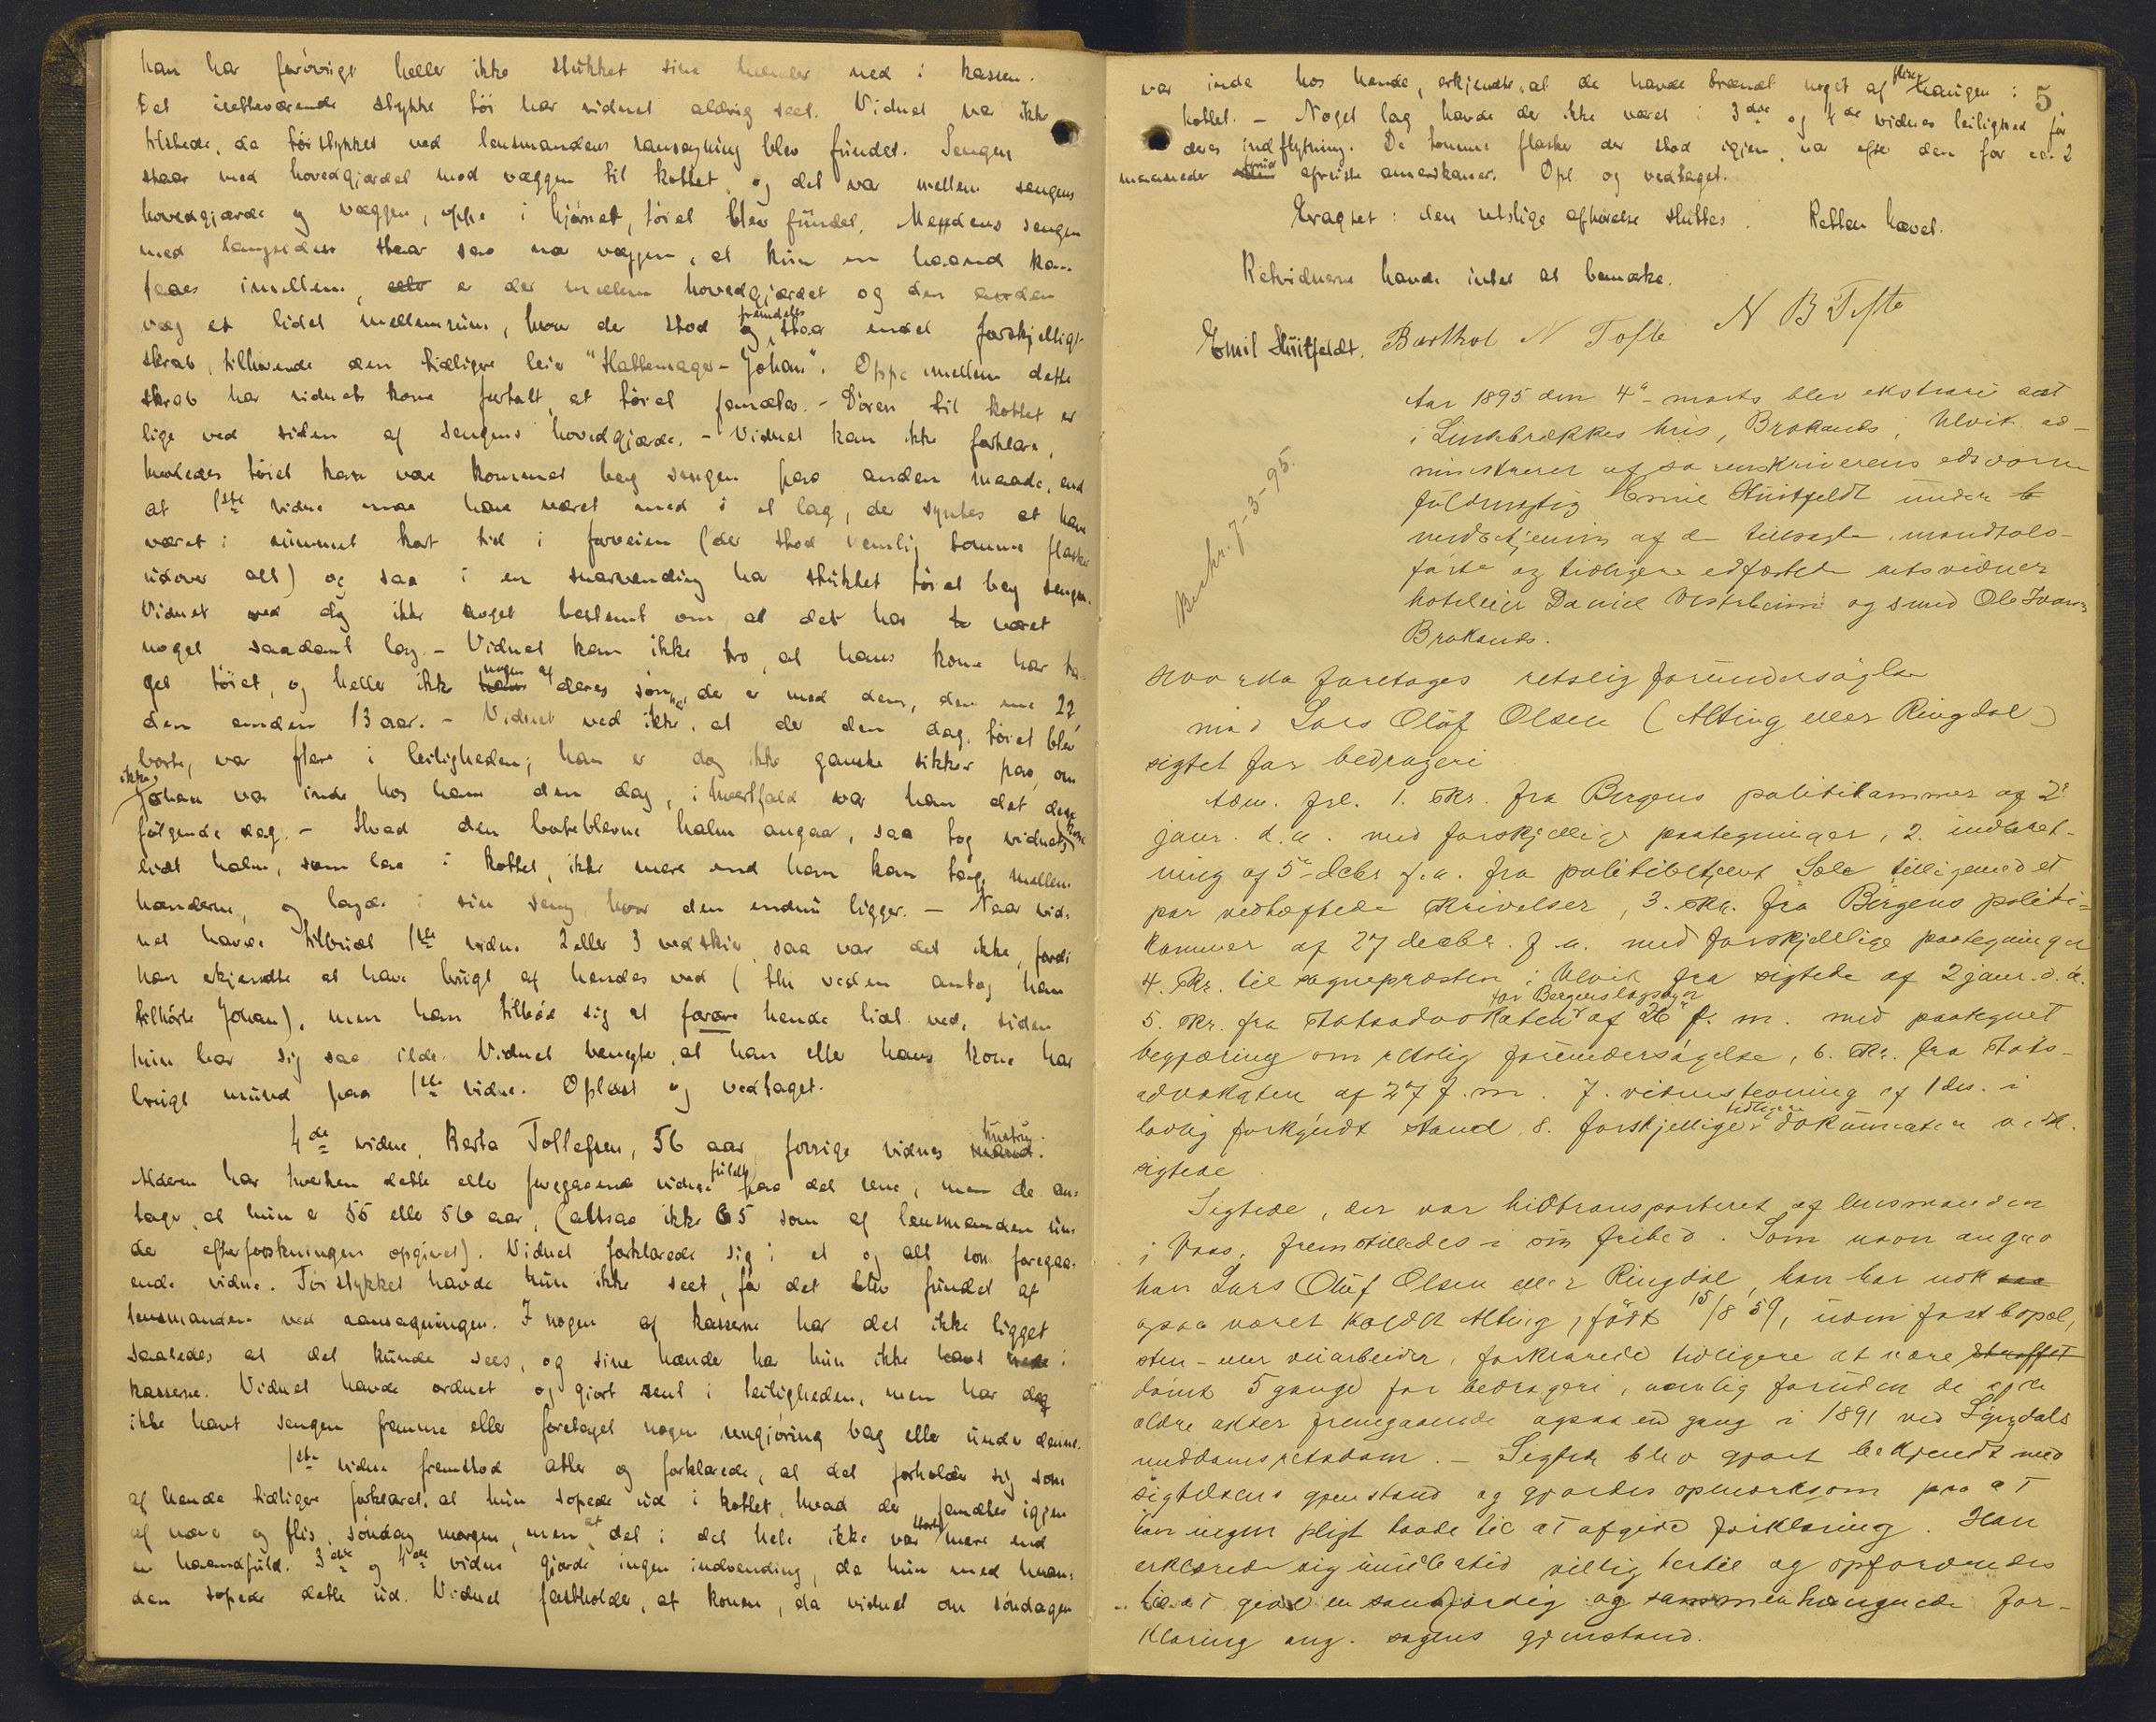 han har forövrigt heller ikke stukket sine hænder ned i kassen.
Det iretteværende stykke töi har vidnet aldrig seet. Vidnet var ikke
tilstede, da töistykket ved lensmandens ransagning blev fundet. Sengen
staar med hovedgjærdet mod væggen til kottet, og det var mellem sengens
hovedgjærde og væggen, oppe i hjörnet, töiet blev fundet. Medens sengen
med langsiden staar saa nær væggen, at kun en haand kan
faaes imellem, er der mellem hovedgjærdet og den anden
væg et lidet mellemrum, hvor der stod og fremdeles staar endel forskjelligt
skrab, tilhörende den tidligere leier "Hattemager-Johan". Oppe imellem dette
skrab har vidnets kone fortalt, at töiet fandtes. - Dören til kottet er
lige ved siden af sengens hovedgjærde. - Vidnet kan ikke forklare,
hvorledes töiet kan være kommet bag sengen paa anden maade, end
at 1ste vidne maa have været med i et lag, der syntes at have
været i rummet kort tid i forveien (der stod nemlig tomme flasker
udover alt) og saa i en snarvending ha stukket töiet bag sengen.
Vidnet ved dog ikke noget bestemt om at det har været
noget saadant lag. - Vidnet kan ikke tro, at hans kone har ta-
get töiet, og heller ikke nogen af deres sönner, der er med dem, den ene 22,
den anden 13 aar. - Vidnet ved ikke, at der den dag, töiet blev
borte, var flere i leiligheden; han er dog ikke ganske sikker paa, om
ikke Johan var inde hos ham den dag, i hvertfald var han det den
fölgende dag. - Hvad den borteblevne halm angaar, saa tog vidnets kone
lidt halm, som laa i kottet, ikke mere end han kan tage mellem
hænderne, og lagde i sin seng, hvor den endnu ligger. - Naar vid-
net havde tilbudt 1ste vidne 2 eller 3 vedskier, saa var det ikke, fordi
han erkjendte at have brugt af hendes ved (thi veden antog han
tilhörte Johan), men han tilböd sig at forære hende lidt ved, siden
hun bar sig saa ilde. Vidnet benegter, at han eller hans kone har
brugt mund paa 1ste vidne. Oplæst og vedtaget.
4de vidne, Berta Tollefsen, 56 aar, forrige vidnes hustru.
Alderen har hverken dette eller foregaaende vidne fuldt paa det rene, men de an-
tager, at hun er 55 eller 56 aar, (altsaa ikke 65 som af lensmanden un-
der efterforskningen opgivet). Vidnet forklarede sig i et og alt som foregaa-
ende vidne. Töistykket havde hun ikke seet, för det blev fundet af
lensmanden ved ransagningen. I nogen af kasserne har det ikke ligget
saaledes at det kunde sees, og sine hænder har hun ikke havt nede i
kasserne. Vidnet havde ordnet og gjort rent i leiligheden, men har dog
ikke havt sengen fremme eller foretaget nogen rengjöring bag eller under denne.
1ste vidne fremstod atter og forklarede, at det forholder sig som
af hende tidligere forklaret, at hun sopede ud i kottet, hvad der fandtes igjen
af næver og flis, söndag morgen, men at det i det hele ikke var stort mere end
en haandfuld. 3die og 4de vidne gjorde ingen indvending, da hun med haan-
den sopede dette ud. Vidnet fastholder, at konen, da vidnet om söndagen
5.
var inde hos hende, erkjendte, at de havde brændt noget af flisehaugen i
kottet. - Noget lag havde der ikke været i 3die og 4de vidnes leilighed för
deres indflytning. De tomme flasker der stod igjen var efter den for ca. 2
maaneder afreiste amerikaner. Opl. og vedtaget.
Eragtet: den retslige afhörelse sluttes. Retten hævet.
Retvidnerne havde intet at bemærke.
Emil Huitfeldt. Barthol N Tofte N B Tofte
Aar 1895 den 4de marts blev ekstraret sat
i Linkebrækkes hus, Brakanes, Ulvik ad-
ministreret af sorenskriverens edsvorne
fuldmegtig Emil Huitfeldt under
medbetjening af de tilsagte mandtals-
förte og tidligere edfæstede retsvidner
hoteleier Daniel Vestrheim og smed Ole Ivars
Brakanes.
Bechr. 7-3-95.
Hvorda foretages retslig forundersögelse
mod Lars Oluf Olsen (Alting eller Ringdal)
sigtet for bedrageri
Adm. frl. 1. skr. fra Bergens politikammer af 2de
janr. d.a. med forskjellige paategninger, 2. indberet-
ning af 5te debr f.a. fra politibetjent Sæle tilligemed et
par vedhæftede skrivelser, 3. skr. fra Bergens politi-
kammer af 27 decbr. f a. med forskjellige paategninger
4. Skr. til sognepresten i Ulvik fra sigtede af 2 janr. d. a.
5. skr. fra statsadvokaten for Bergens lagsogn af 26de f. m. med paategnet
begjæring om retslig forundersögelse, 6. Skr. fra stats-
advokaten af 27 f. m. 7. vidnestevning af 1 ds. i
lovlig forkyndt stand 8. forskjellige tidligere dokumenter vedk.
sigtede.
Sigtede, der var hidtransporteret af lensmanden
i Voss, fremstilledes i sin frihed. Som navn angav
han Lars Oluf Olsen eller Ringdal, han har nok saa
ogsaa været kaldt Alting, födt 15/8 59, uden fast bopæl,
sten- eller veiarbeider, forklarede tidligere at være straffet
dömt 5 gange for bedrageri, nemlig foruden de af de
ældre akter fremgaaende ogsaa en gang i 1891 ved Lyngdals
meddomsretsdom. - Sigtede blev gjort bekjendt med
sigtelsens gjenstand og gjordes opmerksom paa at
han ingen pligt havde til at afgive forklaring. Han
erklærede sig imidlertid villig hertil og opfordredes
til at give en sandfærdig og sammenhængende for-
klaring ang. sagens gjenstand.